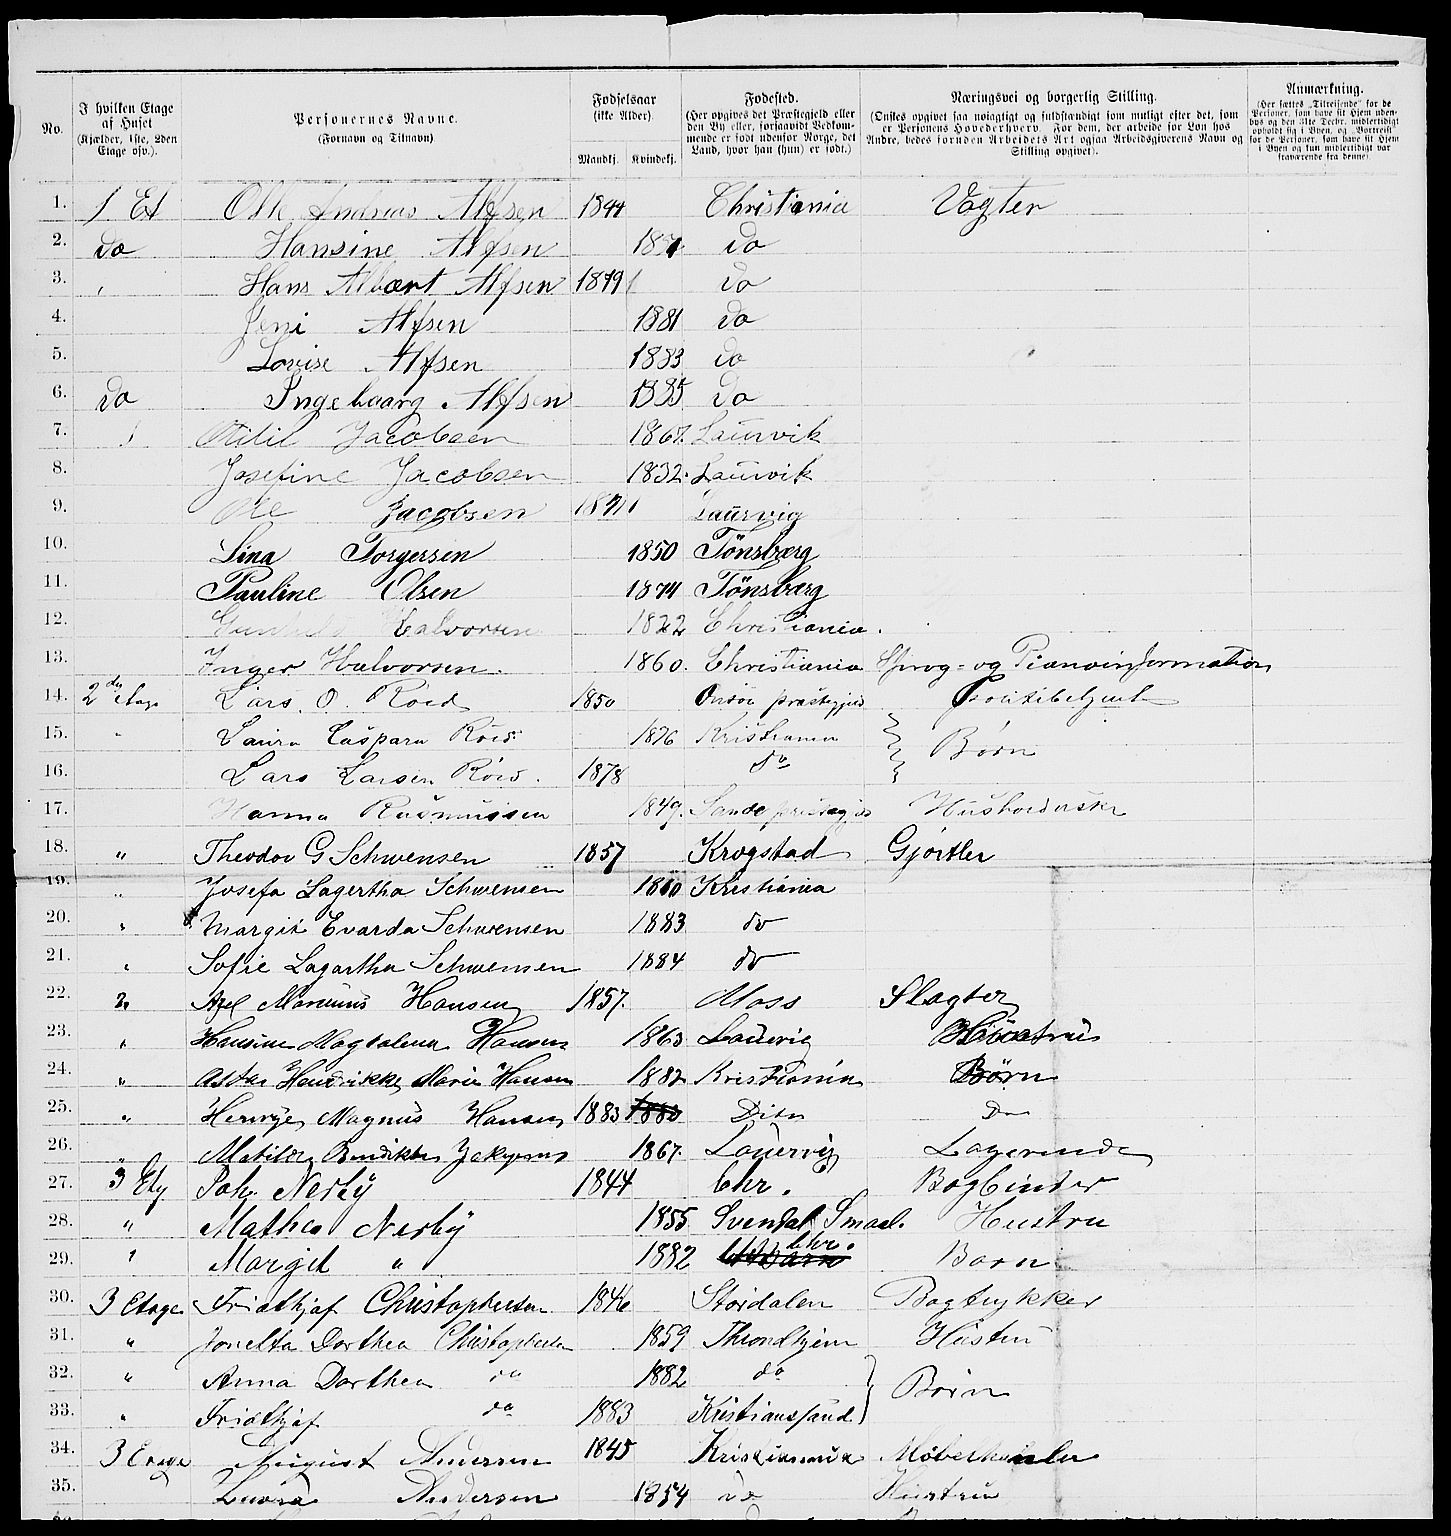 No. | I hvilken Etage af Huset (Kjælder, 1ste, 2den Etage osv.). | Personernes Navne. (Fornavn og Tilnavn). | Fødselsaar (ikke Alder). Mandkj. Kvindekj. | Fødested. (Her opgives det Præstegjeld eller den By eller, forsaavidt Vedkommende er født udenfor Norge, det Land, hvor han (hun) er født.) | Næringsvei og borgerlig Stilling. (Ønskes opgivet saa nøiagtigt og fuldstændigt som muligt efter det, som er Personens Hovederhverv. For dem, der arbeide for Løn hos Andre, bedes foruden Arbeidets Art ogsaa Arbeidsgiverens Navn og Stilling opgivet). | Anmærkning. (Her sættes „Tilreisende“ for de Personer, som have sit Hjem udenbys og den 31te Decbr. midlertidigt opholdt sig i Byen, og „Bortreist“ for de Personer, som have sit Hjem i Byen og kun midlertidigt var fraværende fra denne).
1. 1 Et Olle Andreas Alfsen 1844 Christiania Vagter
2. do Hansine Alfsen do
3. Hans Albært Alfsen 1879 do
4. Jeni Alfsen 1881 do
5. Lovise Alfsen 1883 do
6. do Ingeboarg Alfsen 1885 do
7. Otilil Jacobsen 1867 Laurvik
8. Josefine Jacobsen 1832. Laurvik
9. Ole Jacobsen Laurvig
10. Lina Torgersen 1850 Tönsbærg
11. Pauline Olsen 1874 Tönsbærg
12. Halvorsen 1822 Christiania.
13. Inger Halvorsen. 1860. Christiania Sprog- og Pianoinformation
14. 2den etage Lars. O. Röed 1850 Onsöe præstegjeld Politibetjent
15. " Laura Caspara Röed 1876 Kristiania Børn
16. Lars Larsen Röed. 1878 do
17. Hanna Rasmussen 1849. Sande præstegjeld Husholderske
18. " Theodor G Schwensen 1857 Krogstad Gjörtler
19. " Josefa Lagertha Schwensen 1860 Kristiania
20. " Margit Evarda Schwensen 1883 do
21. " Sofie Lagartha Schwensen 1884 do
22. 2 Axel Marinius Hansen 1857. Moss Slagter
23. " Hansine Magdalena Hansen 1863 Laurvig Hustru
24. " Hendrikke Marie Hansen 1882 Kristiania Børn
25. " Magnus Hansen 1883 1883 Dito do
26. " Matilde 1867. Laurvig Logerende
27. 3 Etg Joh. Nerby 1844 Chr. Bogbinder
28. " Mathea Nerby 1855 Svendal Smaal. Hustru
29. " Margit " 1882 Chr. Barn
30. 3 Etage Fridthjof Christophersen 1846 Stördalen Bogtrykker
31. " Dorthea Christophersen 1859 Throndhjem Hustru
32. " Anna Dorthea do 1882 do Börn
33. " Fridthjof do 1883 Kristianssund
34. 3 Etage August Andersen 1845 Kristiania Møbelhandler
35. Andersen 1854 do Hustru